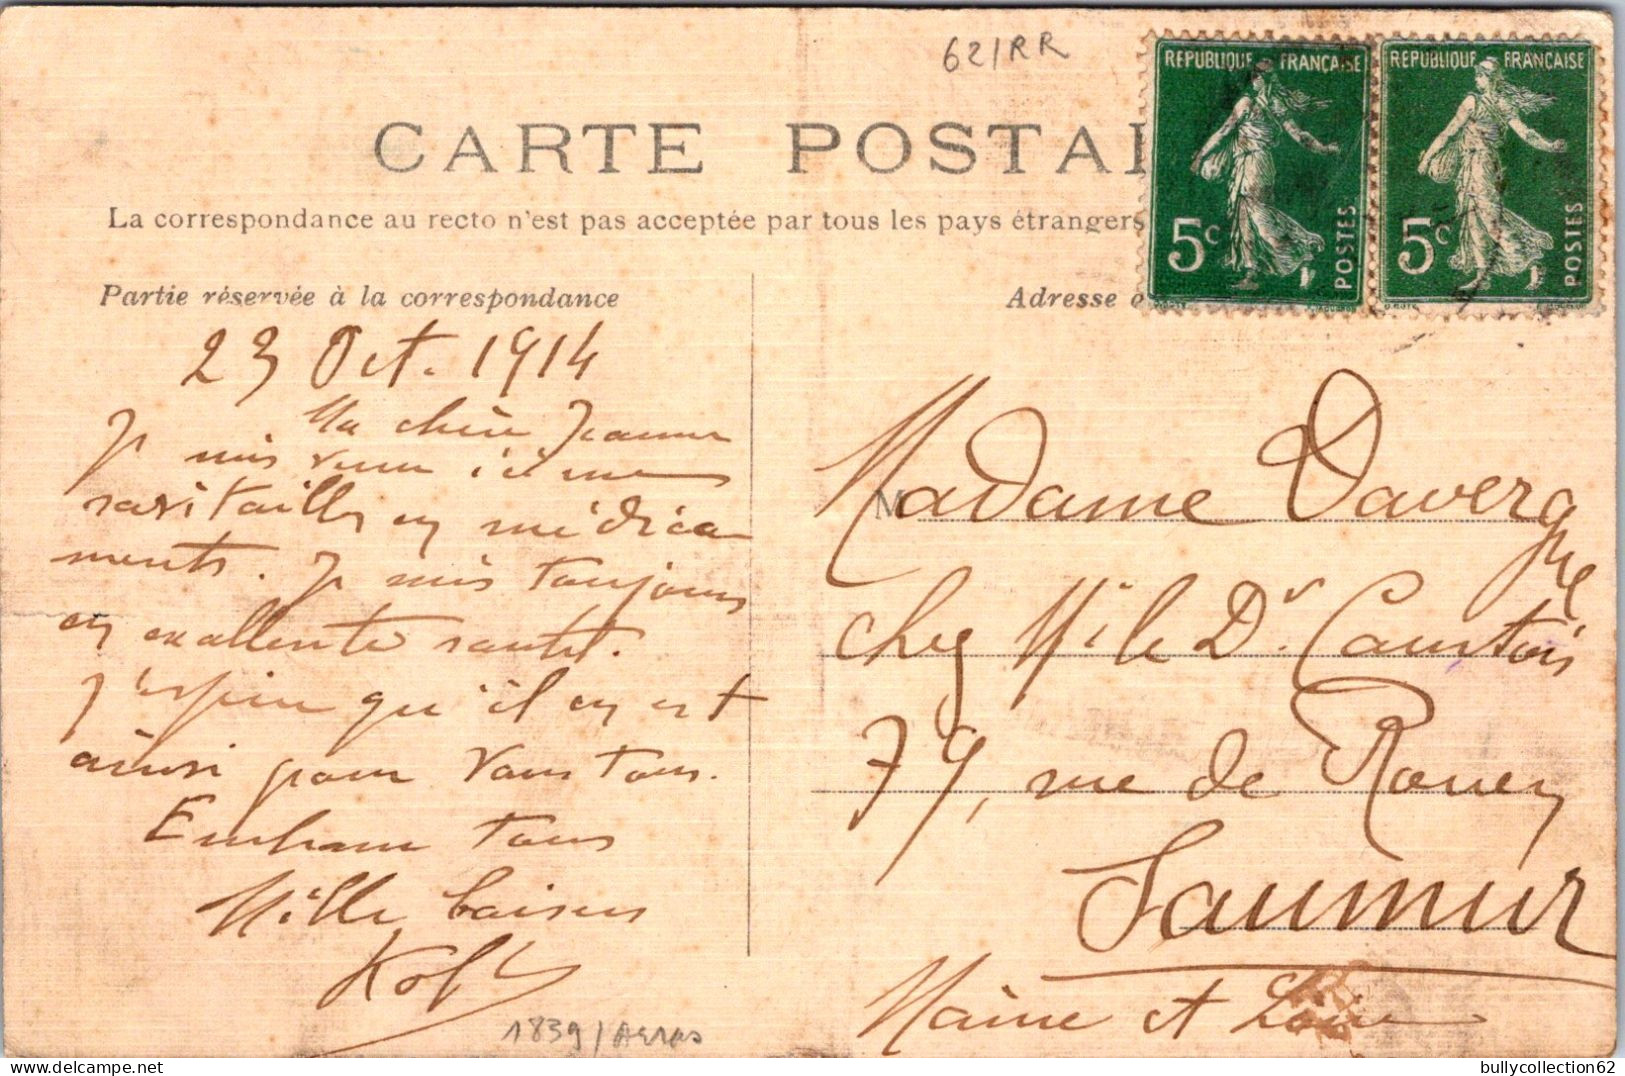 62/RR
RÉPUBLIQUE FRANÇAISE
5c
POSTES
RÉPUBLIQUE FRANÇAISE
5c
POSTES
CARTE POSTAL
La correspondance au recto n'est pas acceptée par tous les pays étrangers
Partie réservée à la correspondance
Adresse
23 Oct. 1914
Ma chère Jeanne
Je suis venu ici me
ravitailler en médica
ments. Je suis toujours
en excellente santé.
J'espère qu'il en est
ainsi pour vous tous.
Embrasse tous
Mille baisers
M
Madame Davergne
chez Mr le Dr. Courtois
79, rue de Rouen
Saumur
Maine et Loire
1839/
bullycollection62